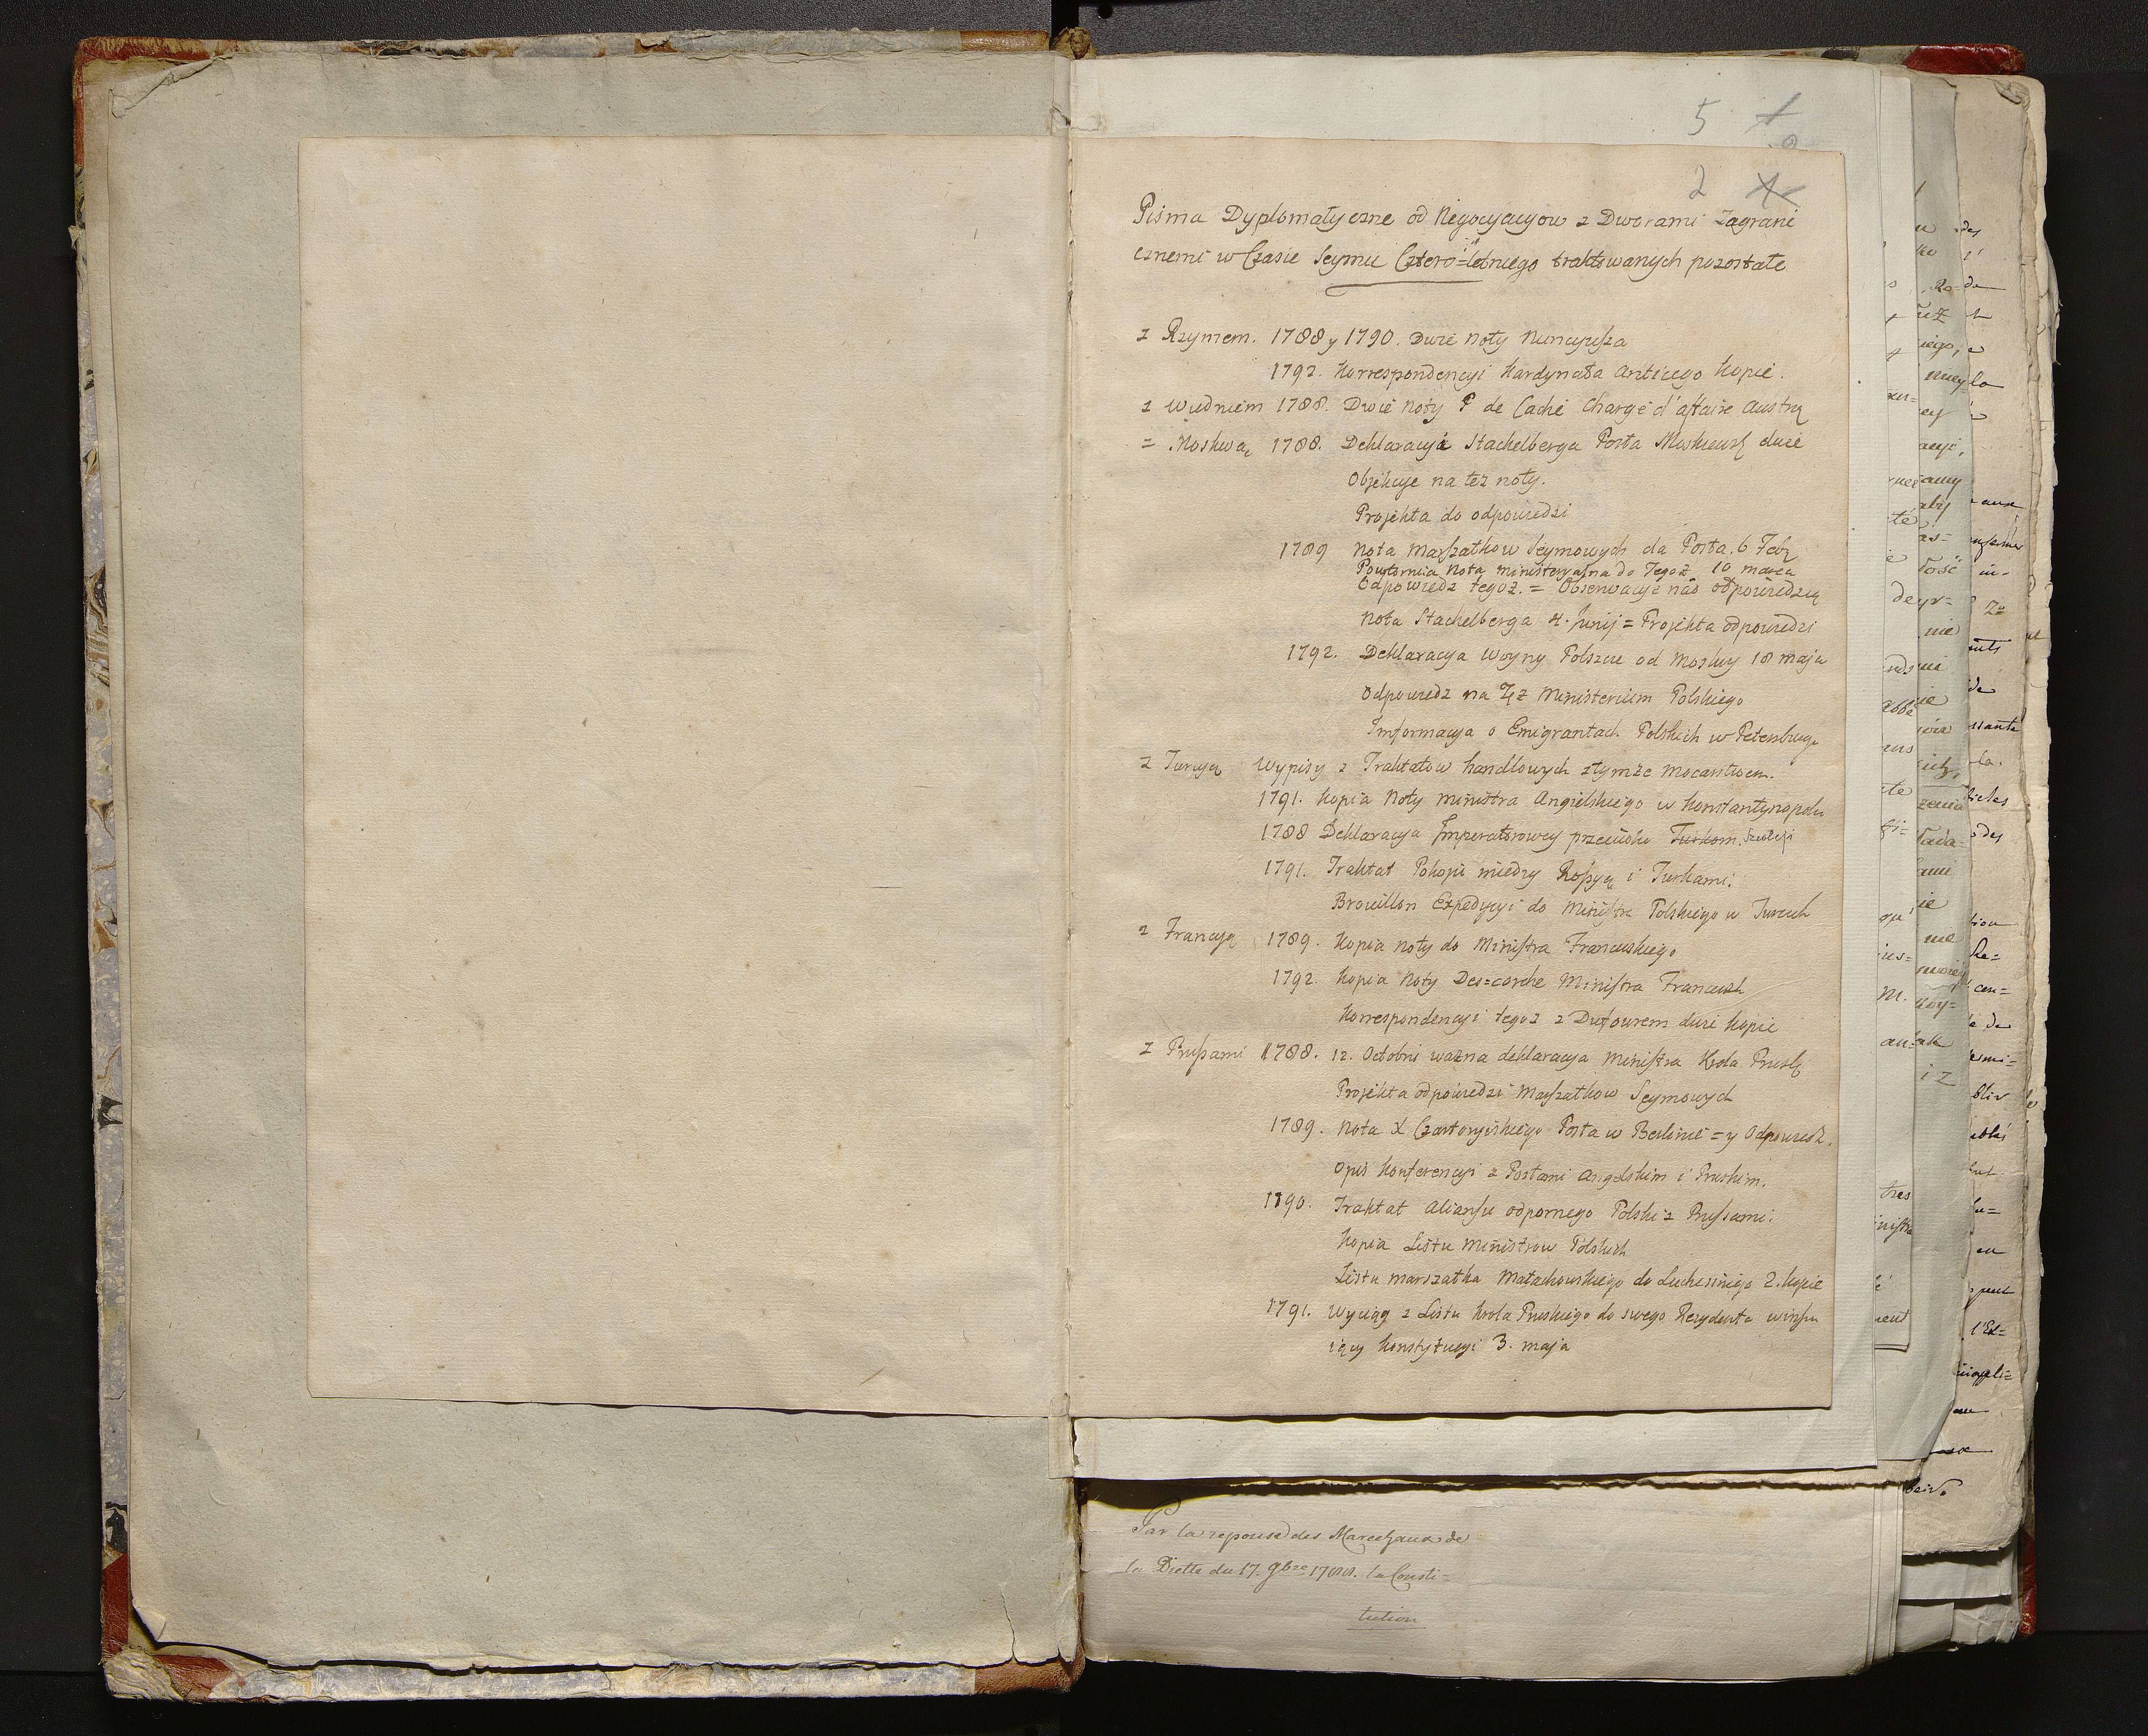 5
2
Pisma Dyplomatyczne od Negocyacyow z Dworami Zagrani
cznemi w Czasie Seymu Cztero=letniego traktowanych pozostałe
z Rzymem. 1788 y 1790. Dwie Noty Nuncyusza
1792. Korrespondencyi Kardynała Anticego Kopie.
z Wiedniem 1788. Dwie Noty P de Caché Chargé d'affaire Austrę
= Moskwą 1788. Deklaracyá Stachelberga Posła Moskiewsk dwie
Objekcye na też noty.
Projekta do odpowiedzi
1789 Nota Marszałkow Seymowych do Posła. 6 Febr
Powtornia Nota ministeryalna do Tegoż 10 marca
Odpowiedz tegoż. = Obserwacye nad odpowiedzią
Nota Stachelberga 4. Junij = Projekta odpowiedzi
1792. Deklaracya Woyny Polszcze od Moskwy 18 maja
Odpowiedz na Tęż Ministerium Polskiego
Informacya o Emigrantach Polskich w Petersburgu
z Turcyą Wypisy z Traktatow handlowych z tymże Mocarstwem.
1791. Kopia Noty ministra Angielskiego w Konstantynopolu
1788 Deklaracya Imperatorowey przeciwko Turkom. Szwecyi
1791. Traktat Pokoju między Rossyą i Turkami.
Brouillon Expedycyi do Ministra Polskiego w Turcuh
z Francyą 1789. Kopia Noty do Ministra Francuskiego
1792. Kopia Noty Des=corche Ministra Francuzk
Korrespondencyi tegoż z Dufourem dwie Kopie
z Prussami 1788. 12. Octobris ważna deklaracya Ministra Krola Prusk
Projekta odpowiedzi Marszałkow Seymowych
1789. Nota X Czartoryiskiego Posła w Berlinie = y Odpowiedz.
Opis Konferencyi z Posłami Angelskim i Pruskim.
1790. Traktat Aliansu odpornego Polski z Prussami.
Kopia Listu Ministrow Polskich
Listu marszałka Małachowskiego do Luchesiniego 2. Kopie
1791. Wyciąg z Listu Krola Pruskiego do swego Rezydenta winszu
iący Konstytucyi 3. maja
Par la reponse des Marechaux de
la Diette du 17. 9bre 1788. la Consti=
tution